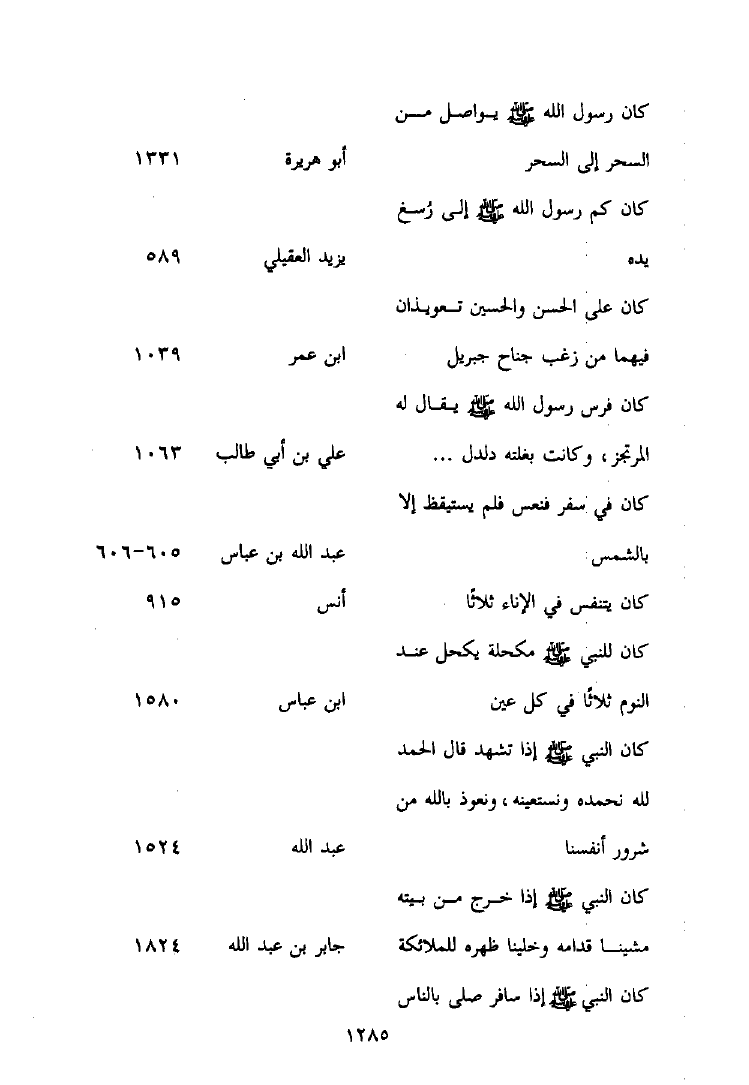 كان رسول الله ﷺ يواصل من
السحر إلى السحر أبو هريرة ١٣٣١
كان كم رسول الله ﷺ إلى رُسغ
يده يزيد العقيلي ٥٨٩
كان على الحسن والحسين تعويذان
فيهما من زغب جناح جبريل ابن عمر ١٠٣٩
كان فرس رسول الله ﷺ يقال له
المرتجز، وكانت بغلته دلدل ... علي بن أبي طالب ١٠٦٣
كان في سفر فنعس فلم يستيقظ إلا
بالشمس عبد الله بن عباس ٦٠٥-٦٠٦
كان يتنفس في الإناء ثلاثًا أنس ٩١٥
كان للنبي ﷺ مكحلة يكحل عند
النوم ثلاثًا في كل عين ابن عباس ١٥٨٠
كان النبي ﷺ إذا تشهد قال الحمد
لله نحمده ونستعينه، ونعوذ بالله من
شرور أنفسنا عبد الله ١٥٢٤
كان النبي ﷺ إذا خرج من بيته
مشينا قدامه وخلينا ظهره للملائكة جابر بن عبد الله ١٨٢٤
كان النبي ﷺ إذا سافر صلى بالناس
١٢٨٥